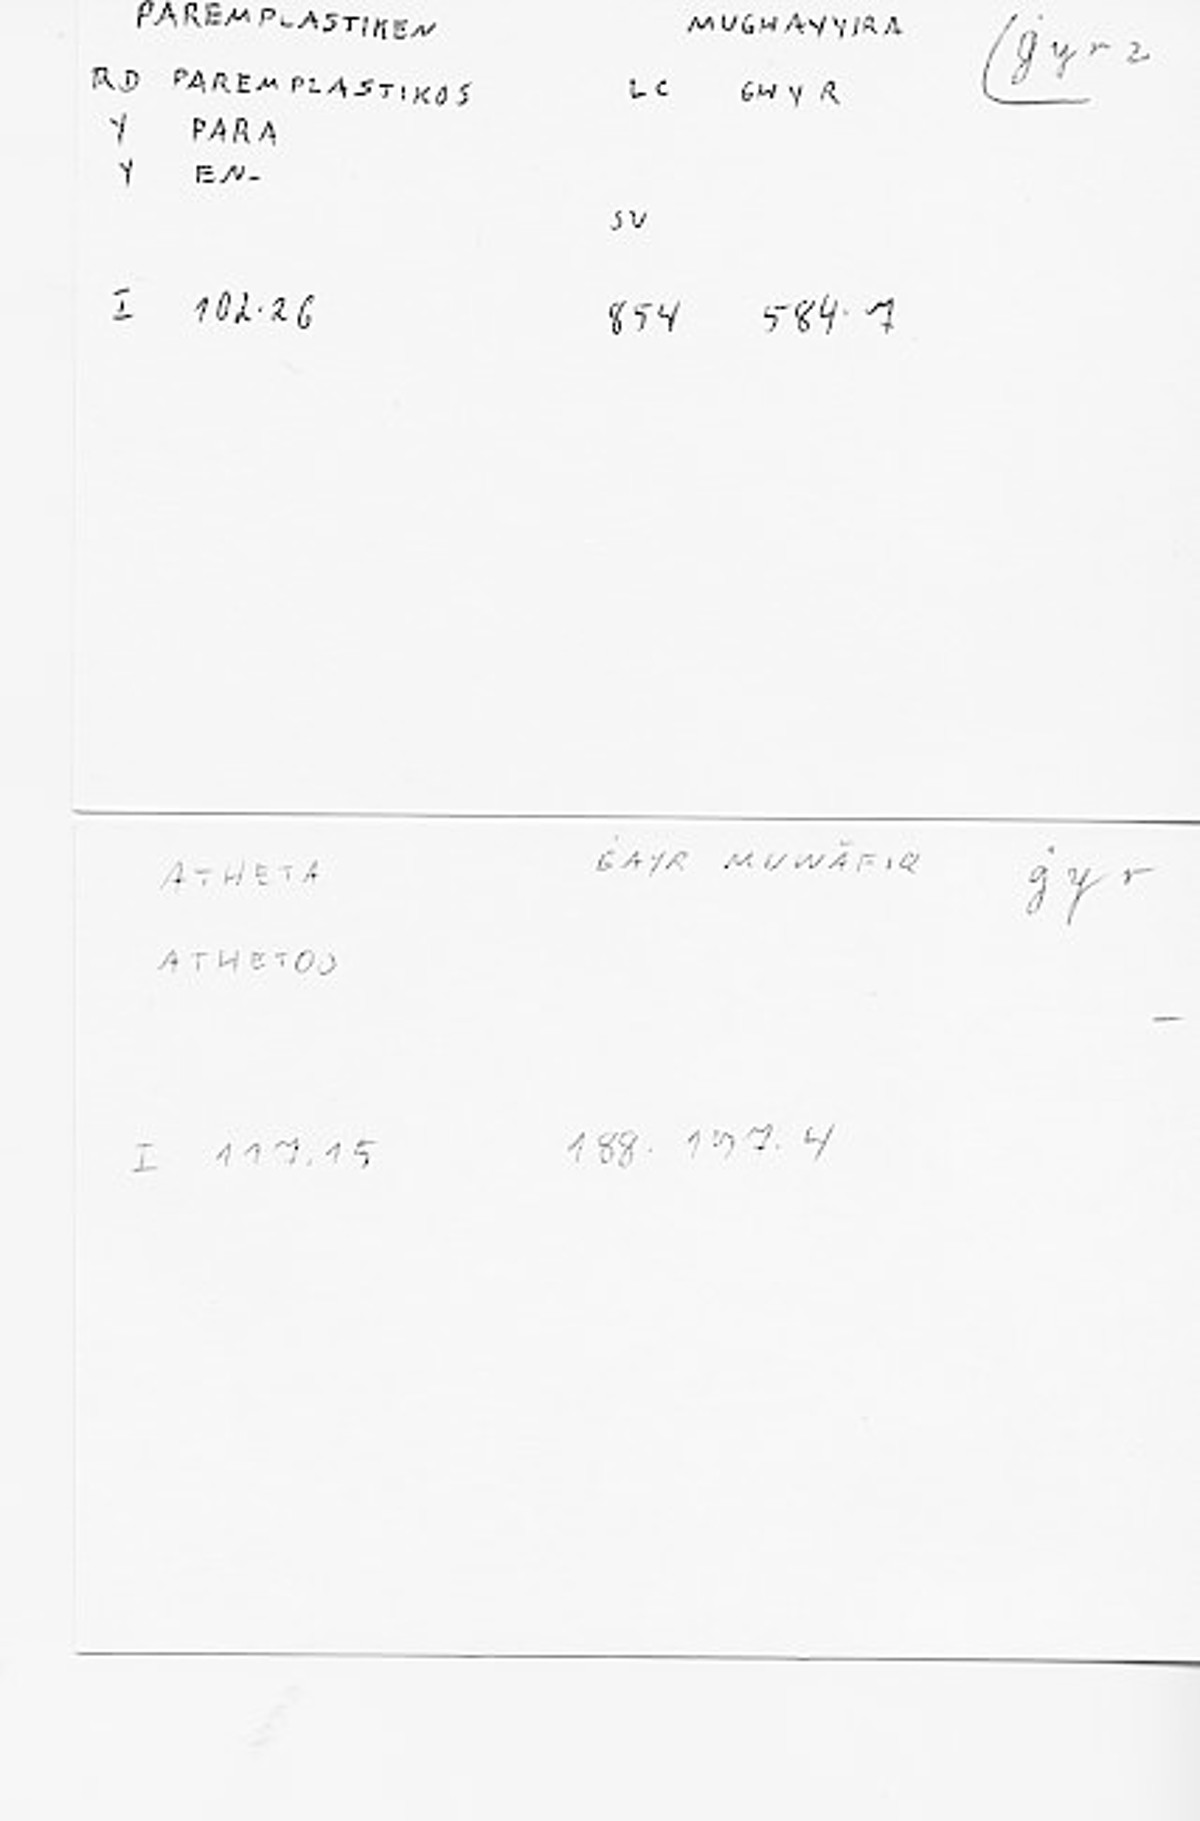 PAREMPLASTIKEN MUGHAYYIRA ġyr 2
RD PAREMPLASTIKOS LC GHYR
Y PARA
Y EN-
SV
I 102.26 854 584.7
ATHETA ĠAYR MUWĀFIQ ġyr
ATHETOS
-
I 117.15 188. 4